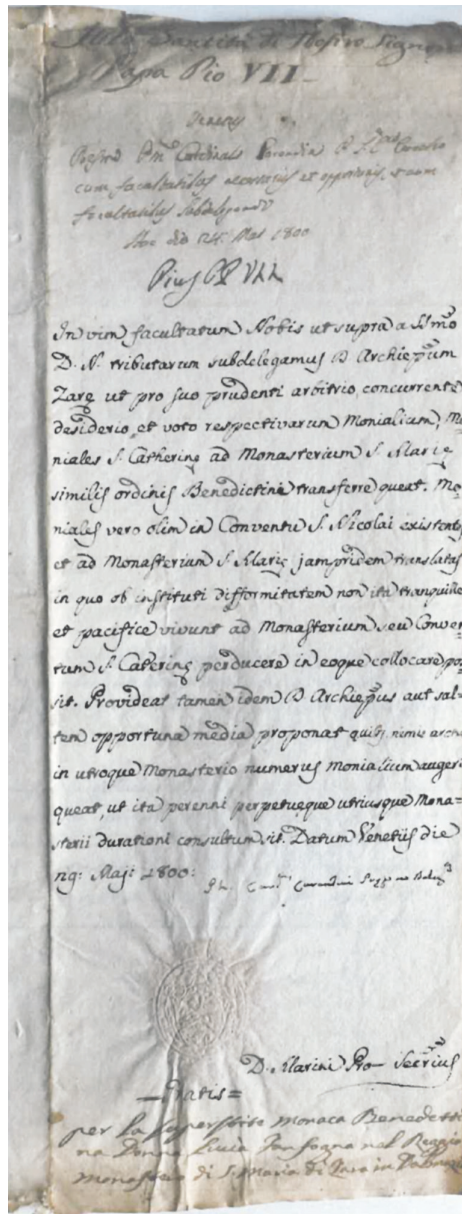 Alla Santità di Nostro Signore
Papa Pio VII
Venetiis
Cardinalis
cum facultatibus necessariis et opportunis, etiam
facultatibus subdelegandi
hac die 24. Maii 1800
Pius PP VII
In vim facultatum Nobis ut supra a SSmo
D. N. tributarum subdelegamus D Archiepum
Zarę ut pro suo prudenti arbitrio, concurrente
desiderio, et voto respectivarum Monialium, Mo
niales S. Catherinę ad Monasterium S. Marię
similis ordinis Benedictinę transferre queat. Mo
niales vero olim in Conventu S. Nicolai existentes
et ad Monasterium S. Marię jampridem translatas
in quo ob instituti difformitatem non ita tranquille
et pacifice vivunt ad Monasterium seu Conven
tum S. Caterinę perducere in eoque collocare pos
sit. Provideat tamen idem D Archiepus aut sal=
tem opportuna media proponat quibus nimis
in utroque Monasterio numerus Monialium augeri
queat, ut ita perenni perpetuęque utriusque Mona=
sterii durationi consultum sit. Datum Venetiis die
Maji 1800:
D. Marini Pro Secrius
— Gratis =
per la superstite Monaca Benedetti
na Donna Livia nel Reggio
monastero di S. Maria di Zara in Dalmazia